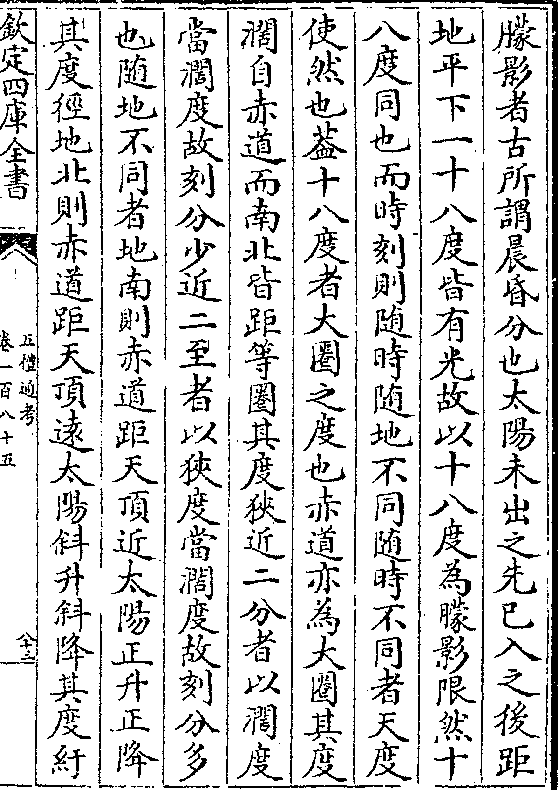 朦影者古所謂晨昏分也太陽未出之先已入之後距
地平下一十八度皆有光故以十八度為朦影限然十
八度同也而時刻則随時随地不同随時不同者天度
使然也葢十八度者大圏之度也赤道亦為大圏其度
濶自赤道而南北皆距等圏其度狹近二分者以濶度
當濶度故刻分少近二至者以狹度當濶度故刻分多
也随地不同者地南則赤道距天頂近太陽正升正降
其度徑地北則赤道距天頂逺太陽斜升斜降其度紆
欽定四庫全書
五禮通考
卷一百八十五